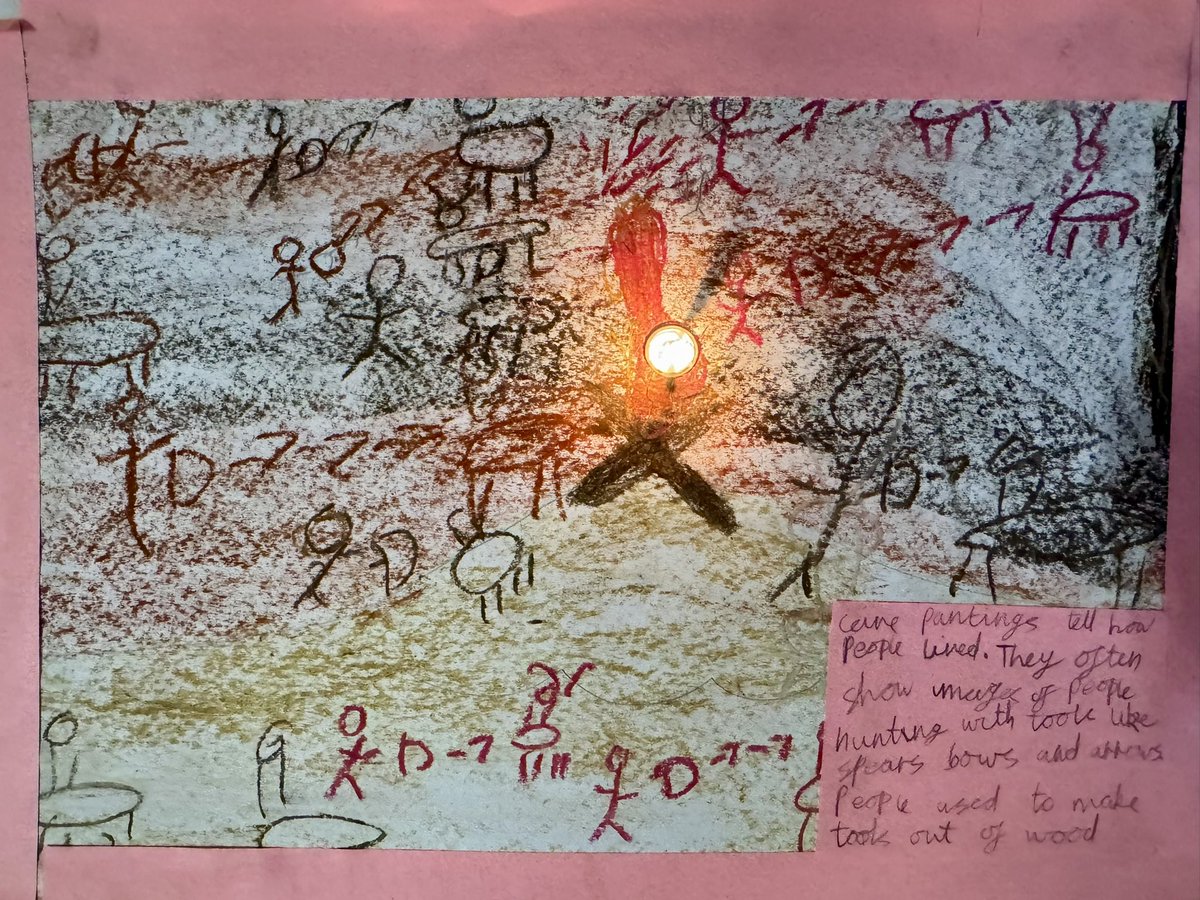 cave pantings tell how
People lived. They often
show images of People
hunting with tools like
spears bows and arrows
People used to make
tools out of wood